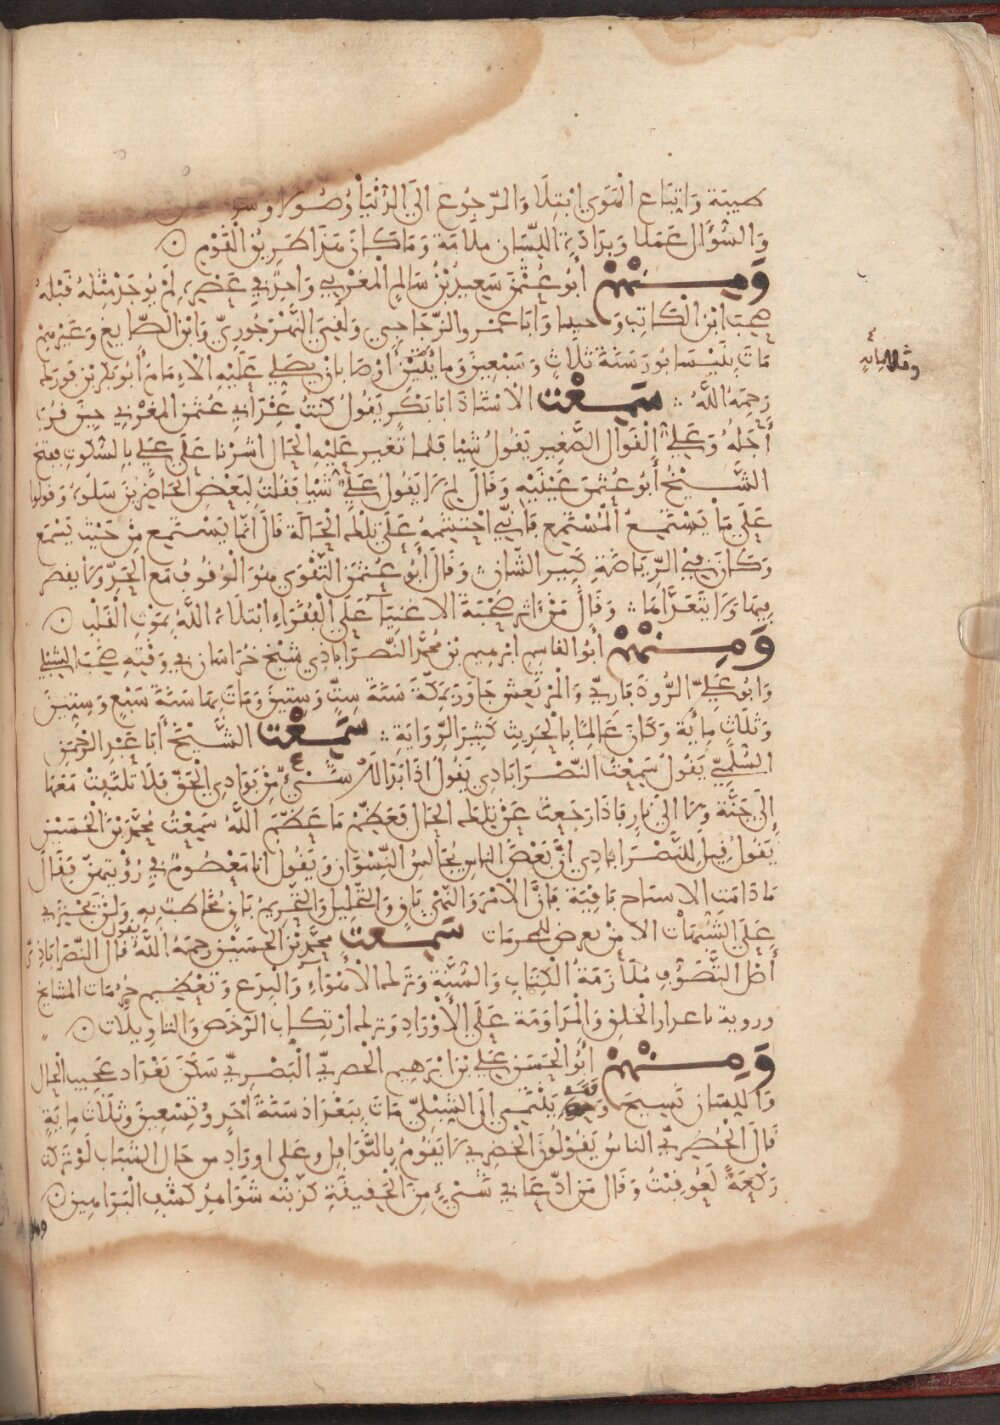 طيبة واتباع الهوى ابتلا والرجوع الى الدنيا وصولا وسو
والسؤال عملا وبذاذة اللسان ملامة وما كان هذا طريق القوم
وَمِنْهُمْ أبو عثمن سعيد بن سالم المغربي واحد في عصره لم يوجد مثله قبله
صحب ابن الكاتب وحبيبا وابا عمرو الزجاجي ولقي النهرجوري وابن الصايغ وغيرهم
مات بنيسابور سنة ثلاث وسبعين ومايتين أوصا بان يصلي عليه الامام أبو بكر بن فورك
رحمه الله سَمِعْت الاستاذ ابا بكر يقول كنت عند أبي عثمن المغربي حين قرب
أجله وعلي القوال الصغير يقول شيا فلما تغير عليه الحال أشرنا على علي بالسكوت ففتح
الشيخ أبو عثمن عينيه وقال لم لا يقول علي شيا فقلت لبعض الحاضرين سلوه وقولوا
على ما يستمع المستمع فاني احتشمه على تلك الحالة قال انما يستمع من حيث يسمع
وكان في الرياضة كبير الشان وقال أبو عثمن التقوى هو الوقوف مع الحدود لا يقصر
فيها ولا يتعداها وقال من اثر صحبة الاغنيا على الفقراء ابتلاه الله بموت القلب
وَمِنْهُمْ أبو القاسم ابرهيم بن محمد النصراباذي شيخ خراسان في وقته صحب الشبلي
وابو علي الروذباري والمرتعش جاور بمكة سنة ست وستين ومات بها سنة سبع وستين
وثلاث مائة وكان عالما بالحديث كثير الرواية سَمِعْت الشيخ أبا عبد الرحمن
السلمي يقول سمعت النصراباذي يقول اذا بدا لك شيء من بوادي الحق فلا تلتفت معها
الى جنة ولا الى نار فاذا رجعت عن تلك الحال فعظم ما عظم الله سمعت محمد بن الحسين
يقول قيل للنصراباذي ان بعض الناس يجالس النسوان ويقول انا معصوم في رؤيتهن فقال
ما دامت الاشباح باقية فان الامر والنهي باق والتحليل والتحريم باق مخاطب به ولن يجترئ
على الشبهات الا من يعرض للحرمات سَمِعت محمد بن الحسين رحمه الله يقول قال النصراباذي
أصل التصوف ملازمة الكتاب والسنة وترك الاهواء والبدع وتعظيم حرمات المشايخ
وروية اعذار الخلق والمداومة على الأوراد وترك ارتكاب الرخص والتاويلات
وَمِنْهُمْ أبو الحسن علي بن ابرهيم الحصري البصري سكن بغداد عجيب الحال
واللسان شيخ وقته ينتمي الى الشبلي مات ببغداذ سنة احدى وسبعين وثلاث ماية
قال الحصري الناس يقولون الحصري لا يقوم بالنوافل وعلى اوراد من حال الشباب لو تركت
ركعة لعوقبت وقال من ادعا في شيء من الحقيقة كذبته شواهد كشف البراهين